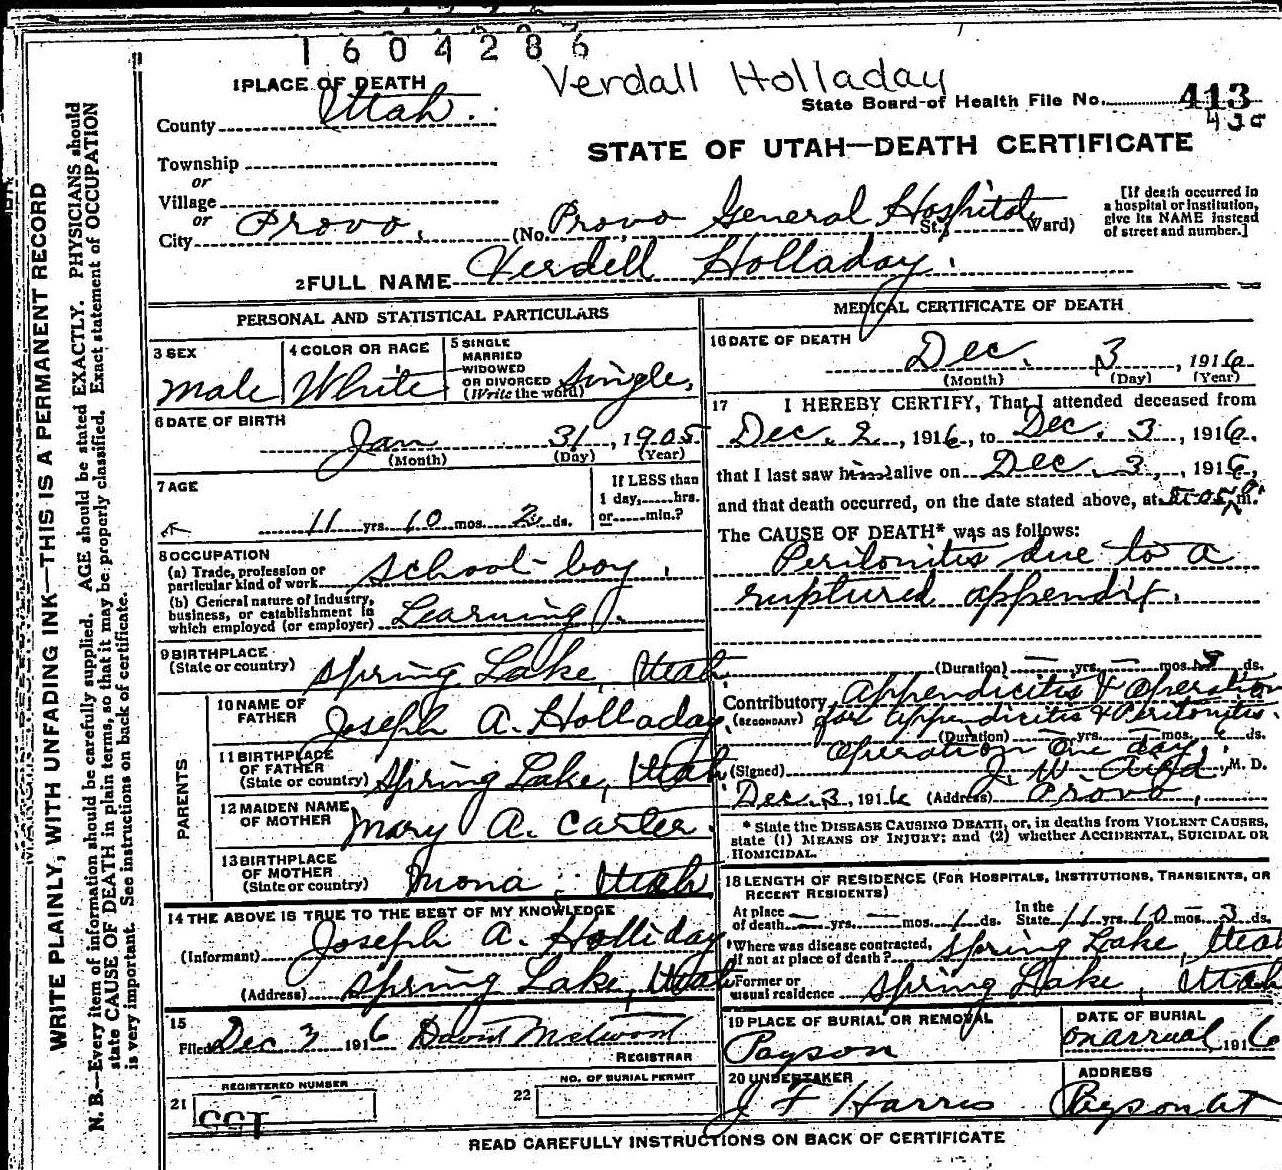 1604286
Verdall Holladay
1 PLACE OF DEATH
State Board of Health File No. 413
County Utah.
STATE OF UTAH—DEATH CERTIFICATE
Township
or
Village
or
City Provo,
(No. Provo General Hospital, St., Ward)
[If death occurred in
a hospital or institution,
give its NAME instead
of street and number.]
2 FULL NAME Verdell Holladay.
WRITE PLAINLY, WITH UNFADING INK—THIS IS A PERMANENT RECORD
N. B.—Every item of information should be carefully supplied. AGE should be stated EXACTLY. PHYSICIANS should
state CAUSE OF DEATH in plain terms, so that it may be properly classified. Exact statement of OCCUPATION
is very important. See instructions on back of certificate.
PERSONAL AND STATISTICAL PARTICULARS
3 SEX
Male
4 COLOR OR RACE
White
5 SINGLE
MARRIED
WIDOWED
OR DIVORCED
(Write the word) Single,
6 DATE OF BIRTH
Jan 31, 1905
(Month) (Day) (Year)
7 AGE
11 yrs. 10 mos. 2 ds.
If LESS than
1 day,......hrs.
or......min.?
8 OCCUPATION
(a) Trade, profession or
particular kind of work School-boy.
(b) General nature of industry,
business, or establishment in
which employed (or employer) Learning.
9 BIRTHPLACE
(State or country) Spring Lake, Utah
PARENTS
10 NAME OF
FATHER Joseph A. Holladay
11 BIRTHPLACE
OF FATHER
(State or country) Spring Lake, Utah
12 MAIDEN NAME
OF MOTHER Mary A. Carter.
13 BIRTHPLACE
OF MOTHER
(State or country) Mona, Utah
14 THE ABOVE IS TRUE TO THE BEST OF MY KNOWLEDGE
(Informant) Joseph A. Holliday
(Address) Spring Lake, Utah
15
Filed Dec 3 1916
REGISTRAR
REGISTERED NUMBER
21
NO. OF BURIAL PERMIT
22
MEDICAL CERTIFICATE OF DEATH
16 DATE OF DEATH
Dec. 3, 1916
(Month) (Day) (Year)
17 I HEREBY CERTIFY, That I attended deceased from
Dec. 2, 1916, to Dec. 3, 1916.
that I last saw him alive on Dec. 3, 1916,
and that death occurred, on the date stated above, at m.
The CAUSE OF DEATH* was as follows:
Peritonitis due to a
ruptured appendix.
(Duration) — yrs. — mos. ds.
Contributory Appendicitis & Operation
(SECONDARY) for Appendicitis & Peritonitis.
(Duration) — yrs. — mos. ds.
Operation one day.
(Signed) J. W. M. D.
Dec. 3, 1916 (Address) Provo,
* State the DISEASE CAUSING DEATH, or, in deaths from VIOLENT CAUSES,
state (1) MEANS OF INJURY; and (2) whether ACCIDENTAL, SUICIDAL OR
HOMICIDAL.
18 LENGTH OF RESIDENCE (FOR HOSPITALS, INSTITUTIONS, TRANSIENTS, OR
RECENT RESIDENTS)
At place
of death — yrs. — mos. 1 ds.
In the
State 11 yrs. 10 mos. 3 ds.
Where was disease contracted,
if not at place of death? Spring Lake, Utah
Former or
usual residence Spring Lake, Utah
19 PLACE OF BURIAL OR REMOVAL
Payson
DATE OF BURIAL
on arrival, 1916
20 UNDERTAKER
J F Harris
ADDRESS
Payson Ut
READ CAREFULLY INSTRUCTIONS ON BACK OF CERTIFICATE